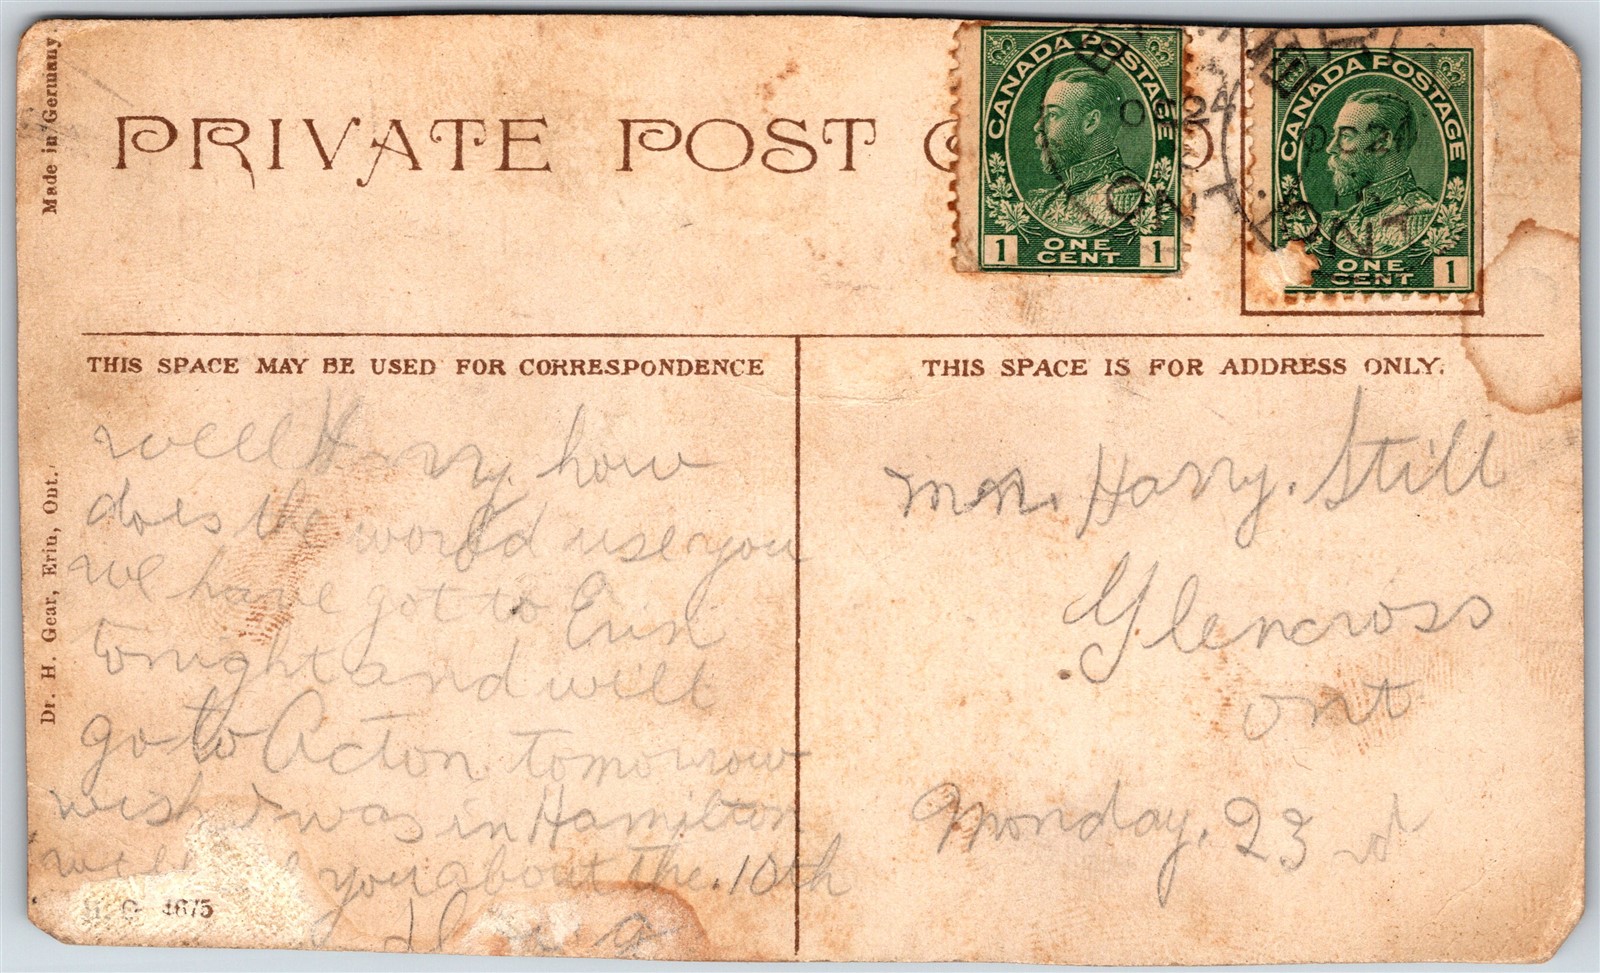 Made in Germany.
PRIVATE POST
CANADA POSTAGE
1 ONE CENT 1
CANADA POSTAGE
ONE CENT 1
24
ONT
ONT
THIS SPACE MAY BE USED FOR CORRESPONDENCE
THIS SPACE IS FOR ADDRESS ONLY.
Dr. H. Gear, Erin, Ont.
well Harry how
does the world use you
we have got to Erin
tonight and will
go to Acton tomorrow
wish I was in Hamilton
you about the 10th
Harry Still
Glencross
ont
Monday, 23rd
4675